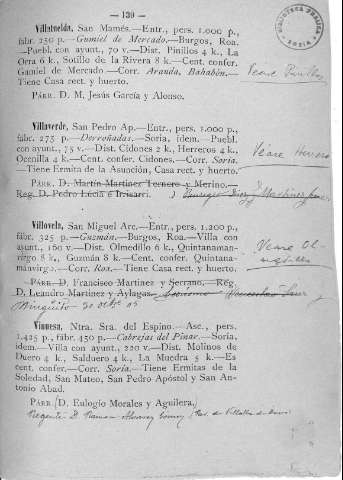 — 139 —
BIBLIOTECA PÚBLICA SORIA
Villatuelda, San Mamés.—Entr., pers. 1.000 p.,
fábr. 250 p.—Gumiel de Mercado.—Burgos, Roa.
—Puebl. con ayunt., 70 v.—Dist. Pinillos 4 k., La
Orra 6 k., Sotillo de la Rivera 8 k.—Cent. confer.
Gumiel de Mercado.—Corr. Aranda, Bahabón.—
Tiene Casa rect. y huerto.
Véase Pinillos
PÁRR. D. M. Jesús García y Alonso.
Villaverde, San Pedro Ap.—Entr., pers. 1.000 p.,
fábr. 275 p.—Derroñadas.—Soria, idem.—Puebl.
con ayunt., 75 v.—Dist. Cidones 2 k., Herreros 4 k.,
Ocenilla 4 k.—Cent. confer. Cidones.—Corr. Soria.
—Tiene Ermita de la Asunción, Casa rect. y huerto.
Véase Herreros
PÁRR. D. Martín Martínez Ternero y Merino.—
Reg. D. Pedro Lucía é Irisarri.
Villovela, San Miguel Arc.—Entr., pers. 1.200 p.,
fábr. 325 p.—Guzmán.—Burgos, Roa.—Villa con
ayunt., 160 v.—Dist. Olmedillo 6 k., Quintanamanvirgo
8 k., Guzmán 8 k.—Cent. confer. Quintanamanvirgo.—Corr.
Roa.—Tiene Casa rect. y huerto.
Véase Ol-
PÁRR. D. Francisco Martínez y Serrano.—Reg.
D. Leandro Martínez y Aylagas.
Vinuesa, Ntra. Sra. del Espino.—Asc., pers.
1.425 p., fábr. 450 p.—Cabrejas del Pinar.—Soria,
idem.—Villa con ayunt., 220 v.—Dist. Molinos de
Duero 4 k., Salduero 4 k., La Muedra 5 k.—Es
cent. confer.—Corr. Soria.—Tiene Ermitas de la
Soledad, San Mateo, San Pedro Apóstol y San Antonio
Abad.
PÁRR. D. Eulogio Morales y Aguilera.
Regente D. Ramon